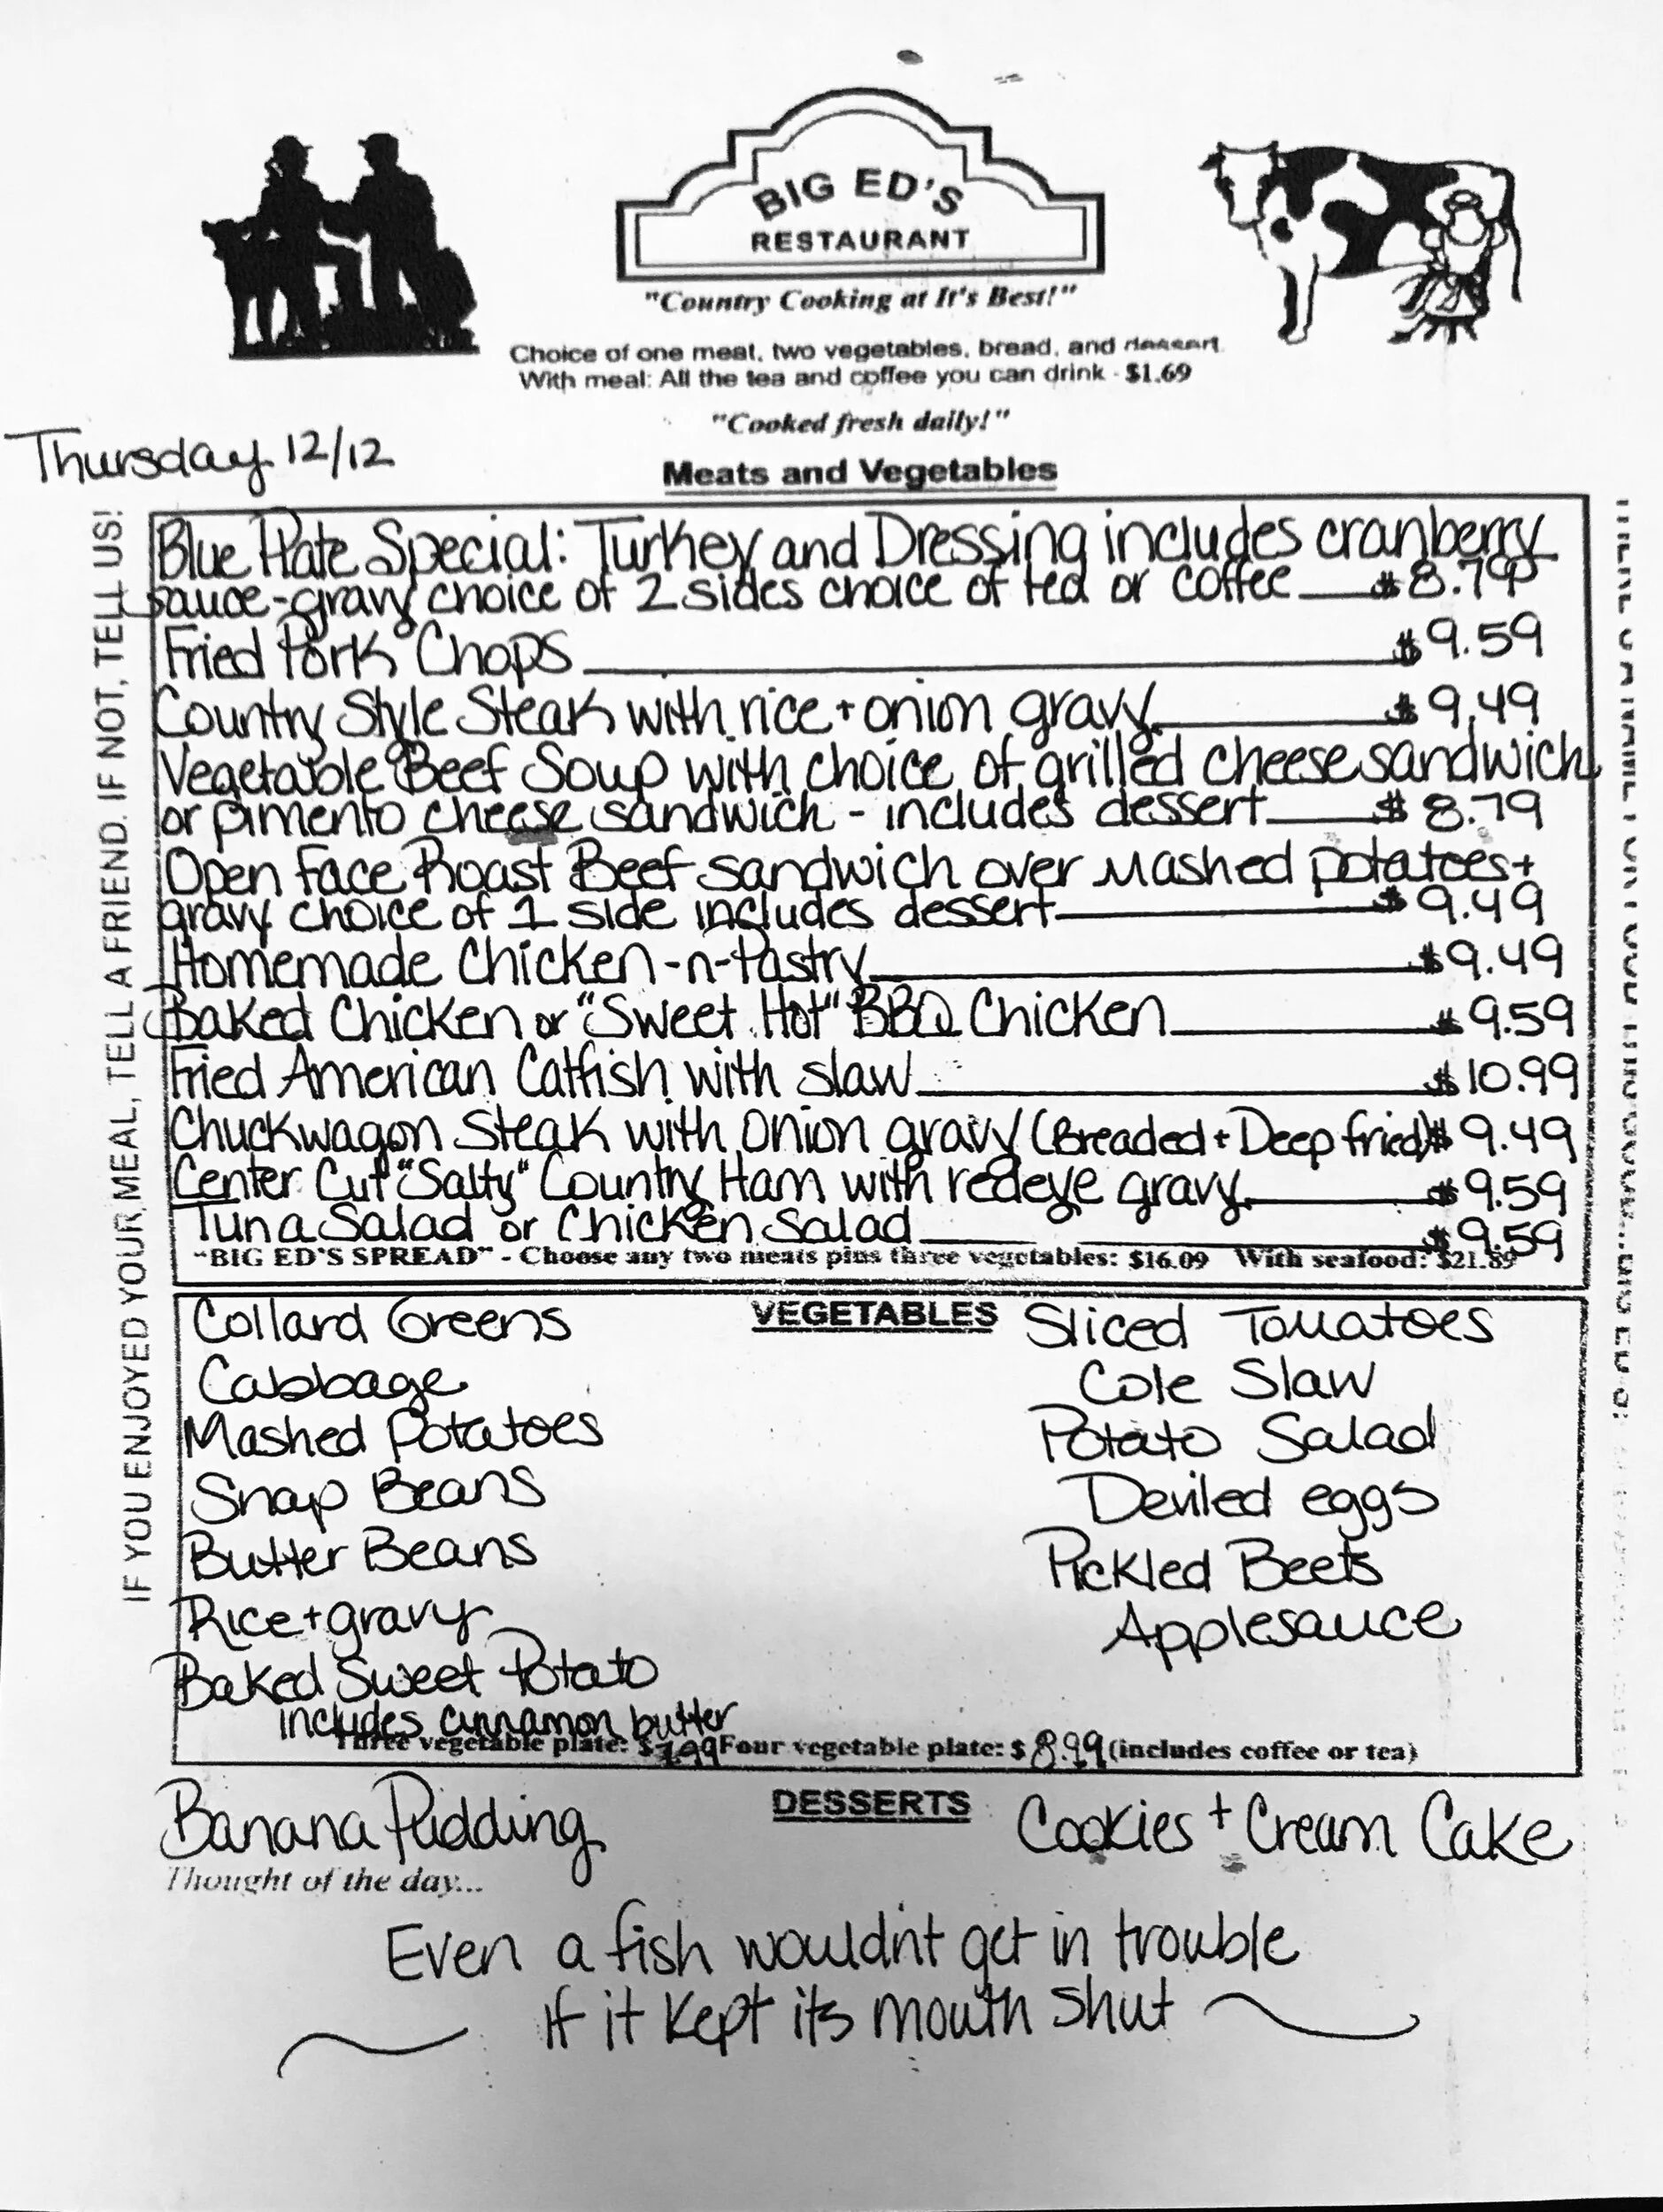 BIG ED'S
RESTAURANT
"Country Cooking at It's Best!"
Choice of one meat, two vegetables, bread, and dessert
With meal: All the tea and coffee you can drink - $1.69
"Cooked fresh daily!"
Thursday 12/12
Meats and Vegetables
IF YOU ENJOYED YOUR MEAL, TELL A FRIEND. IF NOT, TELL US!
Blue Plate Special: Turkey and Dressing includes cranberry
sauce-gravy choice of 2 sides choice of tea or coffee $8.79
Fried Pork Chops $9.59
Country Style Steak with rice + onion gravy $9.49
Vegetable Beef Soup with choice of grilled cheese sandwich
or pimento cheese sandwich - includes dessert $8.79
Open Face Roast Beef sandwich over mashed potatoes +
gravy choice of 1 side includes dessert $9.49
Homemade Chicken-n-Pastry $9.49
Baked Chicken or "Sweet Hot" BBQ Chicken $9.59
Fried American Catfish with slaw $10.99
Chuckwagon Steak with onion gravy (Breaded + Deep fried) $9.49
Center Cut "Salty" Country Ham with redeye gravy $9.59
Tuna Salad or Chicken Salad $9.59
"BIG ED'S SPREAD" - Choose any two meats plus three vegetables: $16.09 With seafood: $21.89
VEGETABLES
Collard Greens
Cabbage
Mashed Potatoes
Snap Beans
Butter Beans
Rice + gravy
Baked Sweet Potato
includes cinnamon butter
Sliced Tomatoes
Cole Slaw
Potato Salad
Deviled eggs
Pickled Beets
Applesauce
Three vegetable plate: $7.99 Four vegetable plate: $8.99 (includes coffee or tea)
DESSERTS
Banana Pudding
Cookies + Cream Cake
Thought of the day...
Even a fish wouldn't get in trouble
If it kept its mouth shut